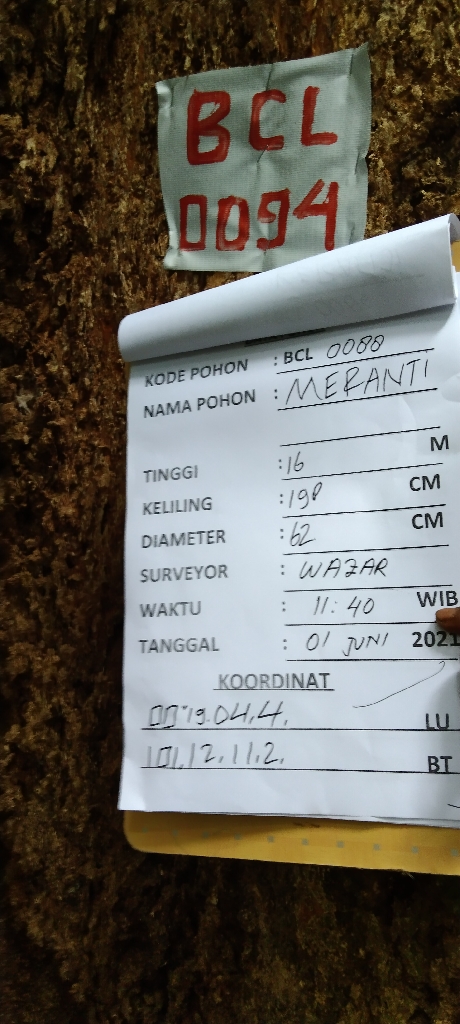 BCL
0094
KODE POHON : BCL 0088
NAMA POHON : MERANTI
TINGGI : 16 M
KELILING : 198 CM
DIAMETER : 62 CM
SURVEYOR : WAZAR
WAKTU : 11:40 WIB
TANGGAL : 01 JUNI 2021
KOORDINAT
00°19.04.4. LU
101.12.11.2. BT